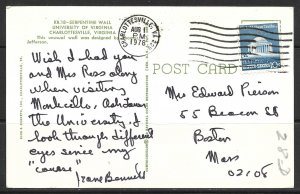 RK.10-SERPENTINE WALL
UNIVERSITY OF VIRGINIA
CHARLOTTESVILLE, VIRGINIA
This unusual wall was designed by
Jefferson.
CHARLOTTESVILLE, VA
AUG 11
PM
1976
POST CARD
Wish I had you
and Mrs Ross along
when visiting
Monticello, Ash Lawn
the University. I
look through different
eyes since my
"course"
Jane Bennett
Mr Edward Pierson
55 Beacon St
Boston
Mass
02108